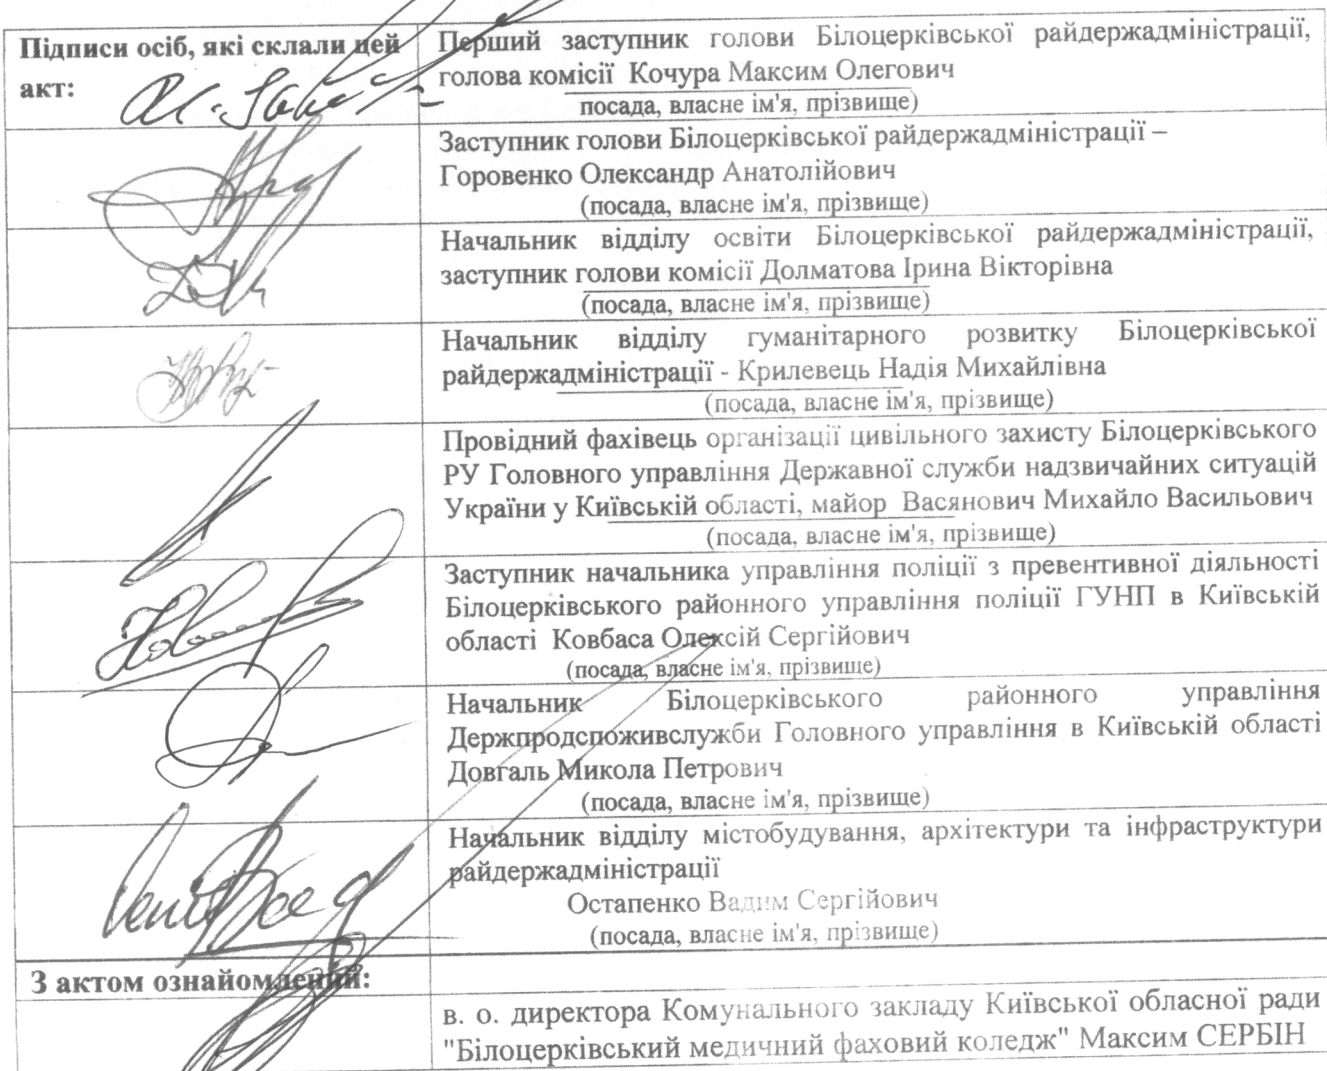 Підписи осіб, які склали цей
акт:
Перший заступник голови Білоцерківської райдержадміністрації,
голова комісії Кочура Максим Олегович
посада, власне ім'я, прізвище)
Заступник голови Білоцерківської райдержадміністрації –
Горовенко Олександр Анатолійович
(посада, власне ім'я, прізвище)
Начальник відділу освіти Білоцерківської райдержадміністрації,
заступник голови комісії Долматова Ірина Вікторівна
(посада, власне ім'я, прізвище)
Начальник відділу гуманітарного розвитку Білоцерківської
райдержадміністрації - Крилевець Надія Михайлівна
(посада, власне ім'я, прізвище)
Провідний фахівець організації цивільного захисту Білоцерківського
РУ Головного управління Державної служби надзвичайних ситуацій
України у Київській області, майор Васянович Михайло Васильович
(посада, власне ім'я, прізвище)
Заступник начальника управління поліції з превентивної діяльності
Білоцерківського районного управління поліції ГУНП в Київській
області Ковбаса Олексій Сергійович
(посада, власне ім'я, прізвище)
Начальник Білоцерківського районного управління
Держпродспоживслужби Головного управління в Київській області
Довгаль Микола Петрович
(посада, власне ім'я, прізвище)
Начальник відділу містобудування, архітектури та інфраструктури
райдержадміністрації
Остапенко Вадим Сергійович
(посада, власне ім'я, прізвище)
З актом ознайомлений:
в. о. директора Комунального закладу Київської обласної ради
"Білоцерківський медичний фаховий коледж" Максим СЕРБІН